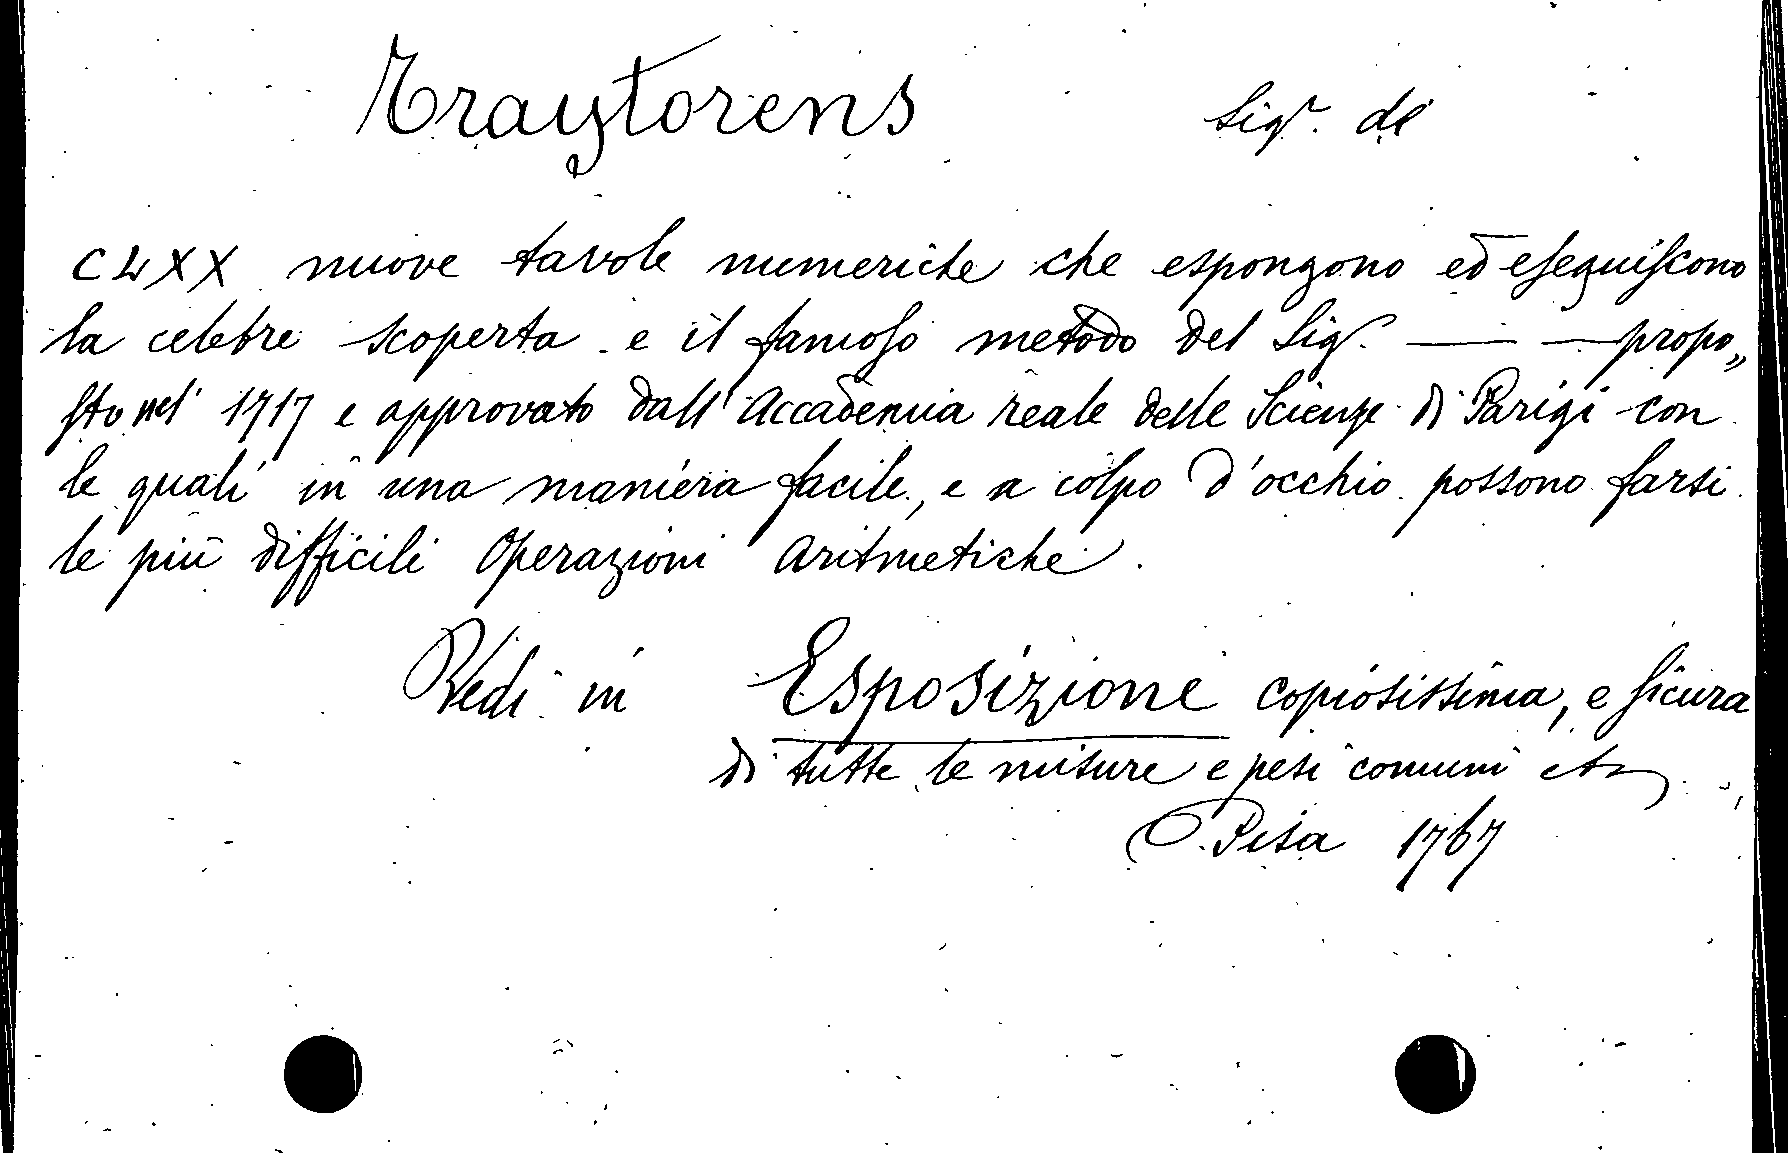 Traytorens Sigr. de
CLXX nuove tavole numeriche che espongono ed eseguiscono
la celebre scoperta e il famoso metodo del Sigr. — — propo„
sto nel 1717 e approvato dall'Accademia reale delle Scienze di Parigi con
le quali in una maniera facile, e a colpo d'occhio possono farsi
le più difficili Operazioni Aritmetiche.
Vedi in Esposizione copiosissima, e sicura
di tutte le misure e pesi comuni etc
Pisa 1767